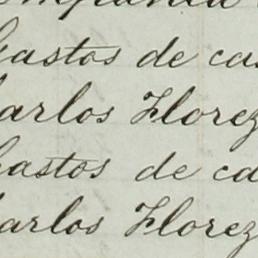 Gastos de ca
Carlos Florez
Gastos de ca
Carlos Florez